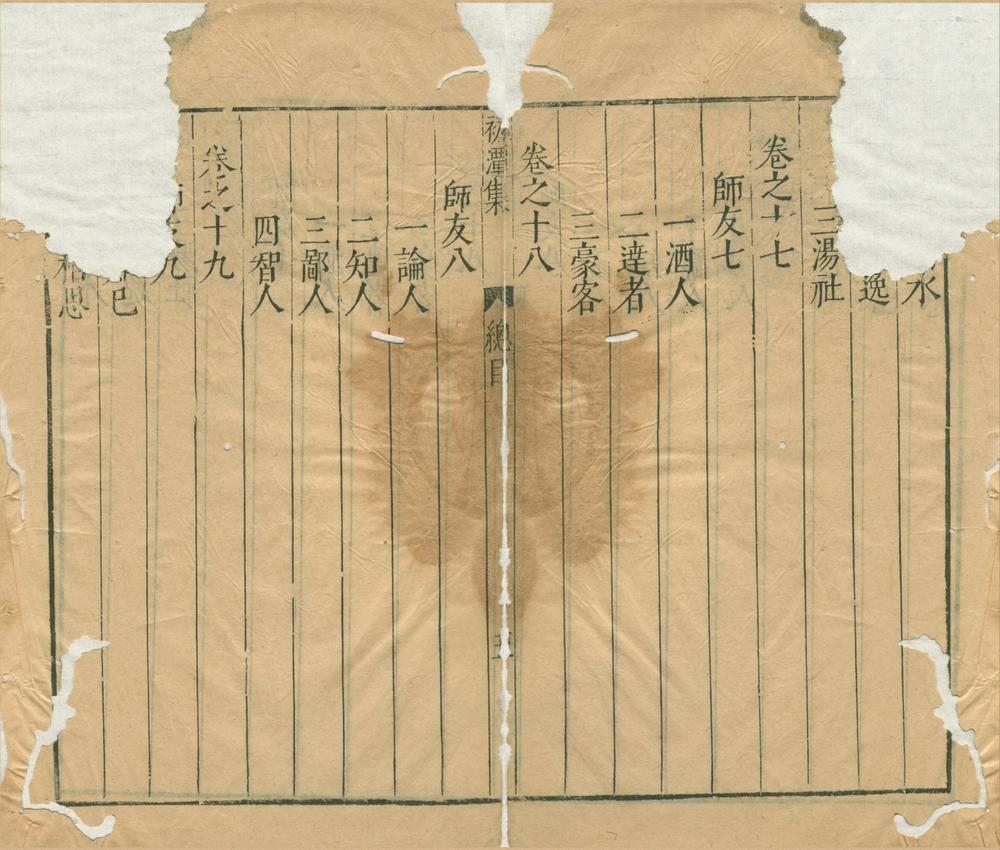 水
逸
三湯社
卷之十七
師友七
一酒人
二達者
三豪客
卷之十八
潭集
總目
五
師友八
一論人
二知人
三鄙人
四智人
卷之十九
師友九
知己
相思